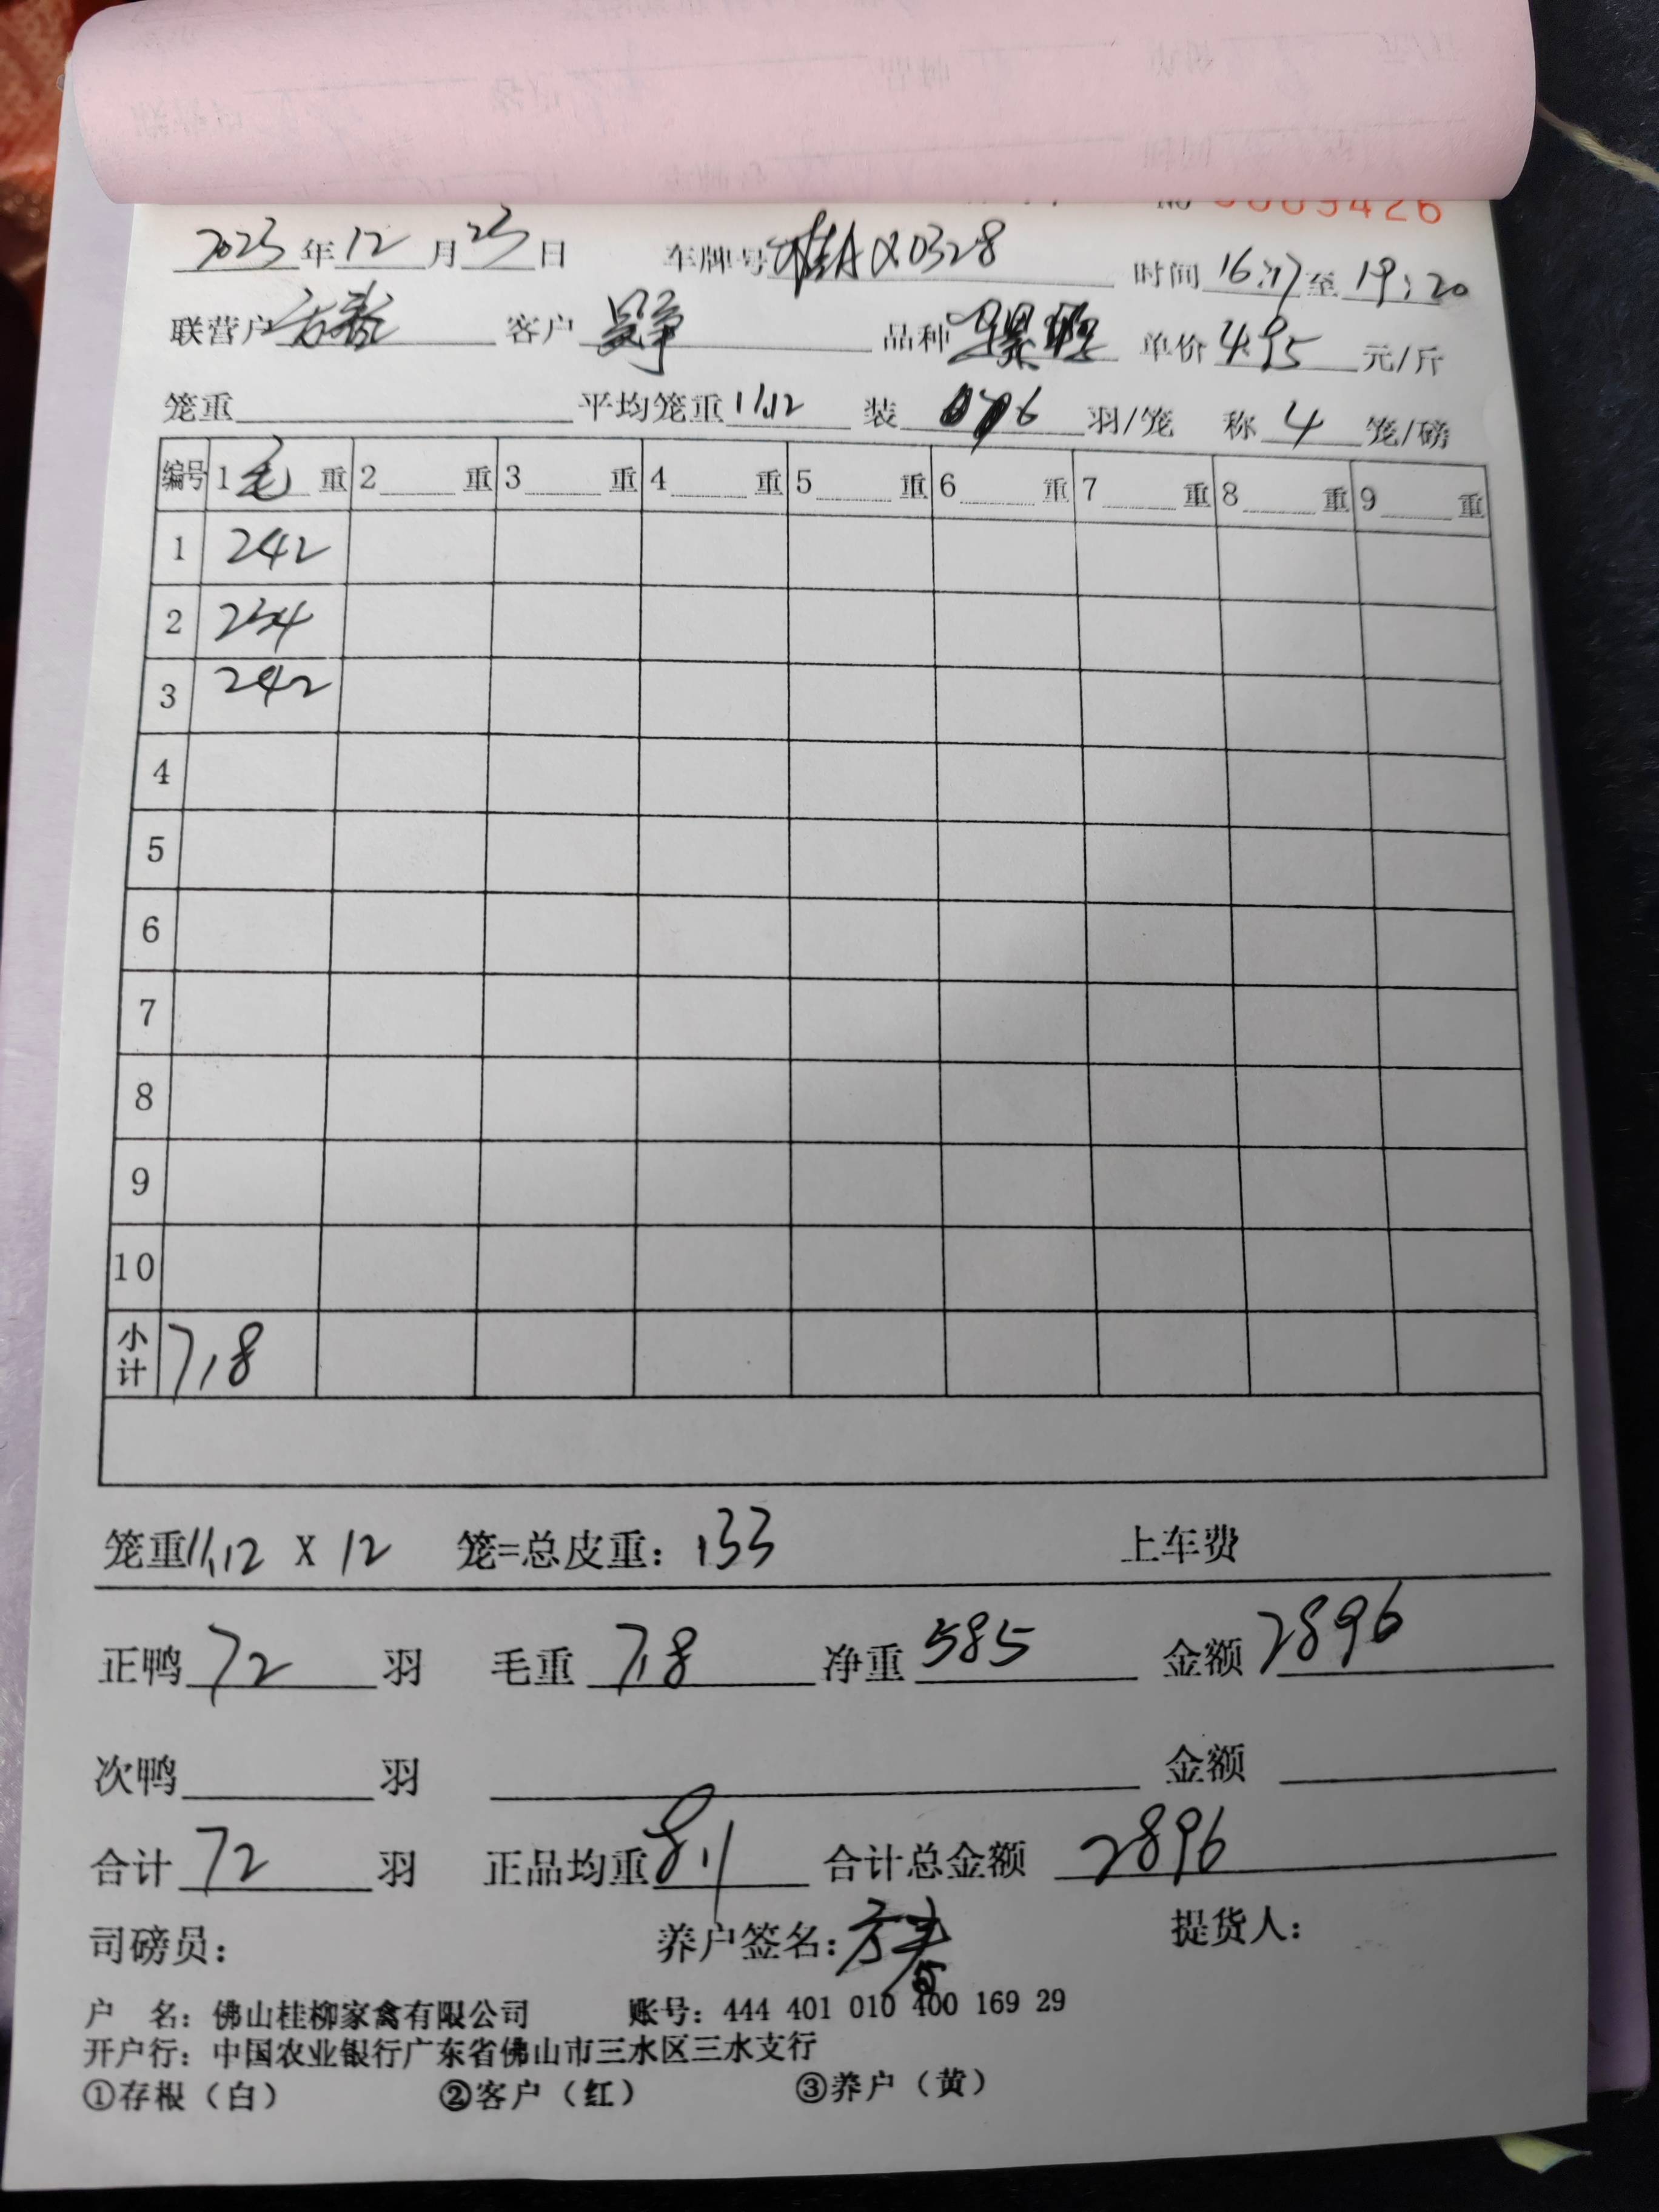 No 0009426
2023年12月23日 车牌号 桂A Q0328 时间 16:17至19:20
联营户 客户 品种 单价 4.95 元/斤
笼重 平均笼重 11.12 装 6 羽/笼 称 4 笼/磅
编号 1 毛重 2 重 3 重 4 重 5 重 6 重 7 重 8 重 9 重
1 242
2 234
3 242
4
5
6
7
8
9
10
小计 718
笼重 11.12 X 12 笼=总皮重: 133 上车费
正鸭 72 羽 毛重 718 净重 585 金额 2896
次鸭 羽 金额
合计 72 羽 正品均重 8.1 合计总金额 2896
司磅员: 养户签名: 提货人:
户 名: 佛山桂柳家禽有限公司 账号: 444 401 010 400 169 29
开户行: 中国农业银行广东省佛山市三水区三水支行
①存根（白） ②客户（红） ③养户（黄）